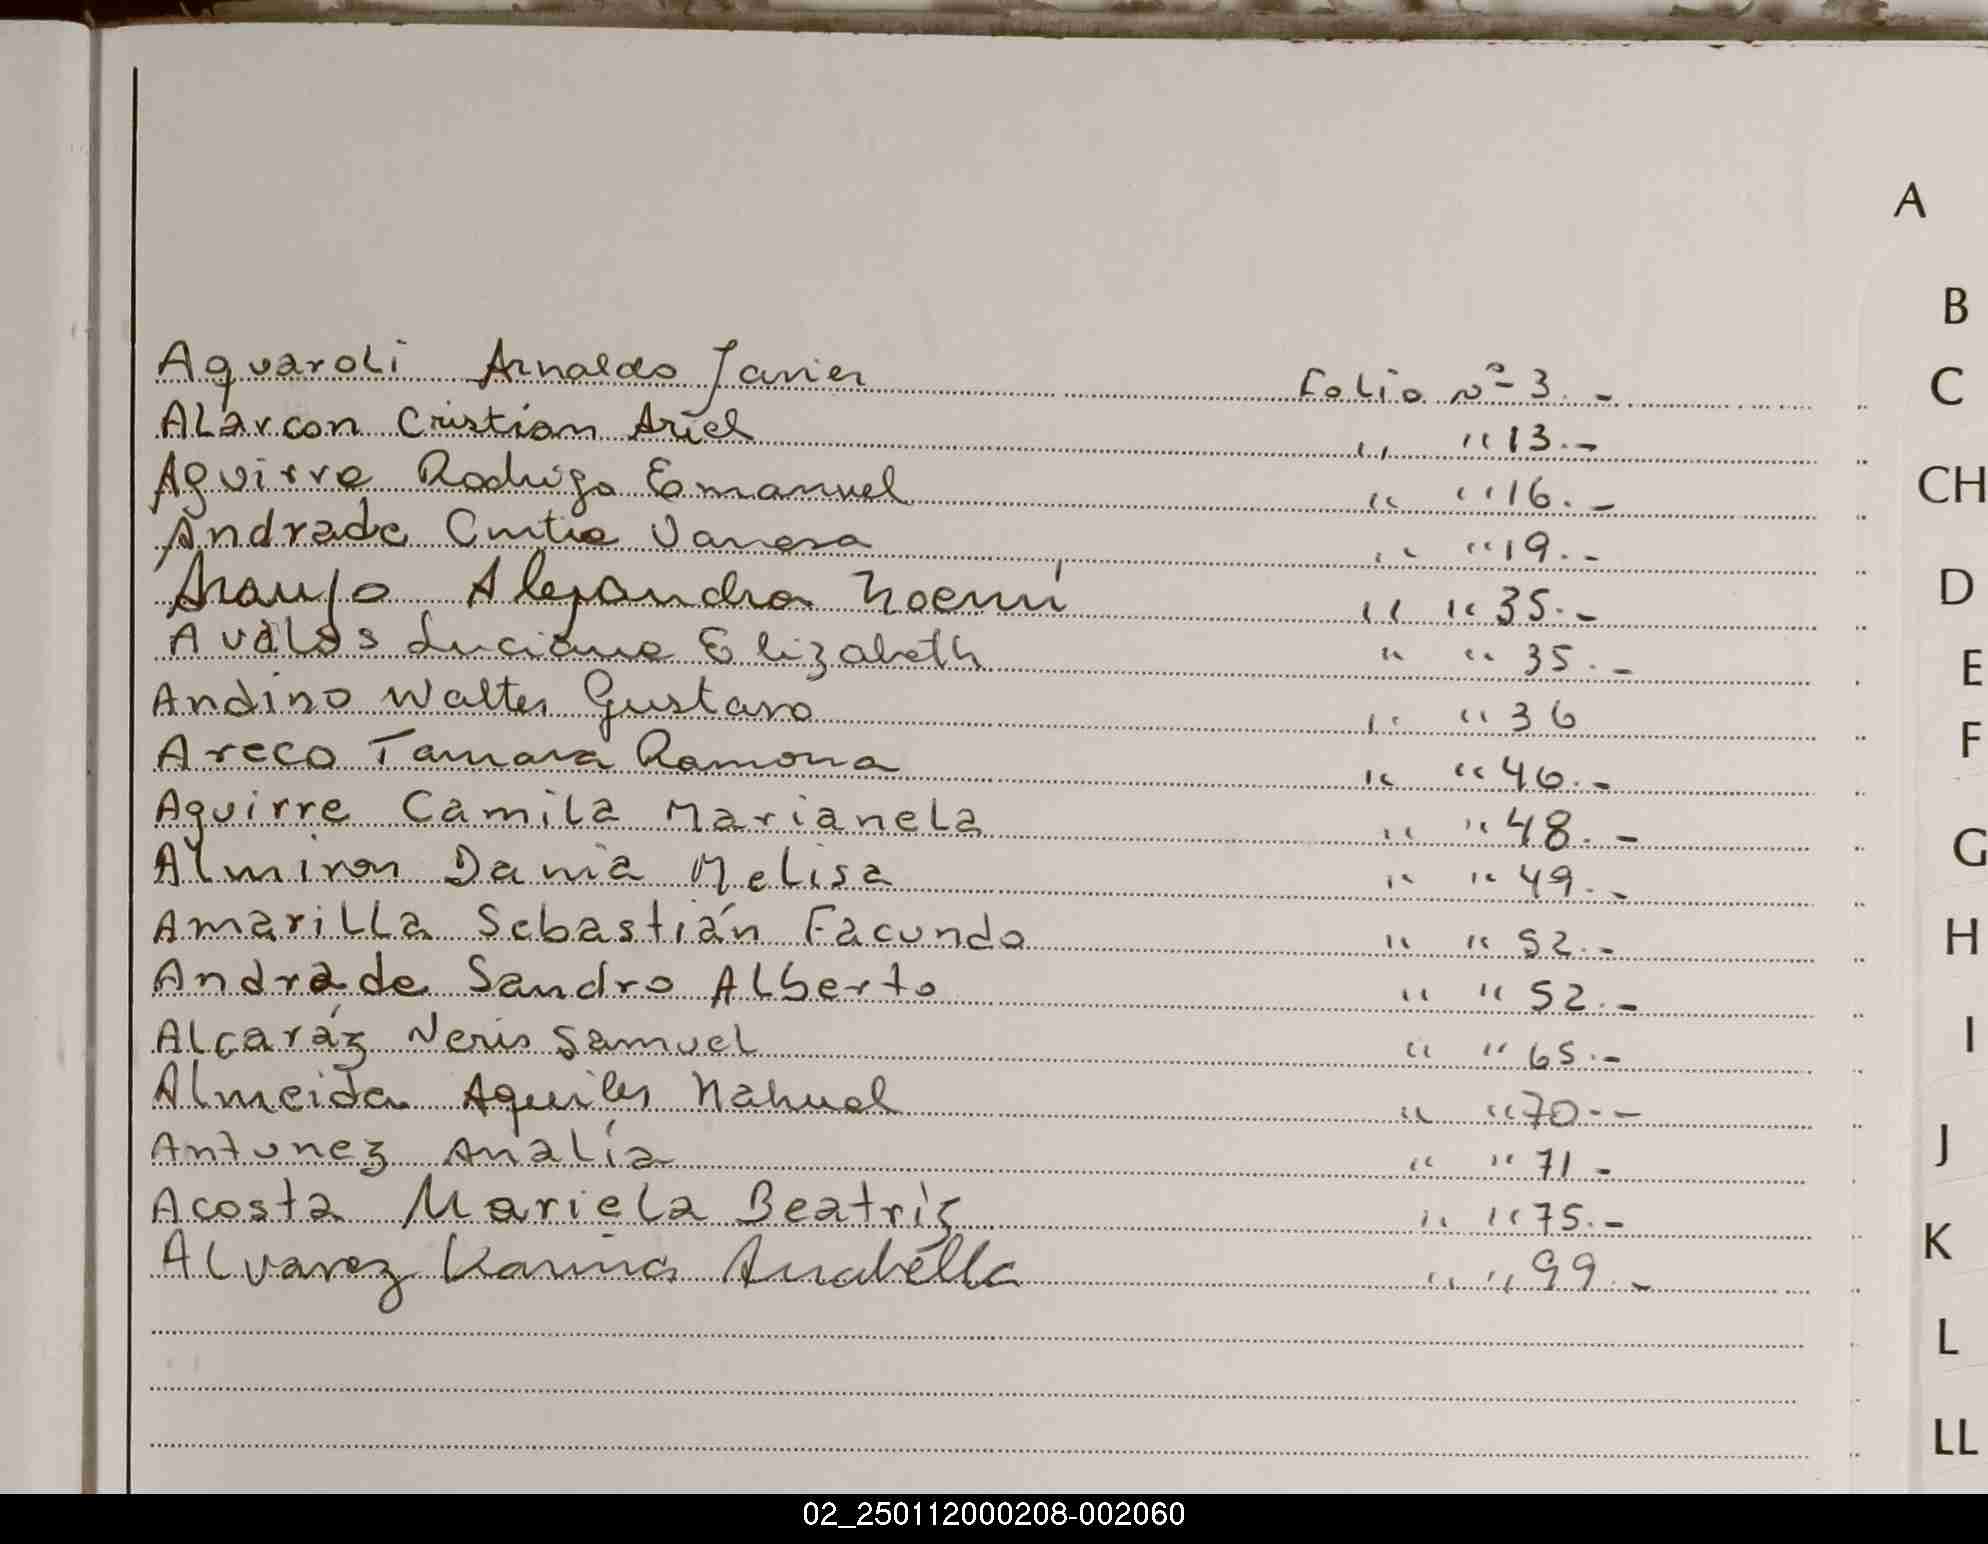 Aquaroli Arnaldo Javier Folio Nº 3.-
ALarcon Cristian Ariel " " 13.-
Aguirre Rodrigo Emanuel " " 16.-
Andrade Cintia Vanesa " " 19.-
Araujo Alejandra Noemí " " 35.-
Avalos Luciana Elizabeth " " 35.-
Andino Walter Gustavo " " 36
Areco Tamara Ramona " " 46.-
Aguirre Camila Marianela " " 48.-
Almiron Dania Melisa " " 49.-
Amarilla Sebastián Facundo " " 52.-
Andrade Sandro Alberto " " 52.-
Alcaráz Neris Samuel " " 65.-
Almeida Aquiles Nahuel " " 70.--
Antunez Analía " " 71.-
Acosta Mariela Beatríz " " 75.-
Alvarez Karina Anabella " " 99.-
A
B
C
CH
D
E
F
G
H
I
J
K
L
LL
02_250112000208-002060